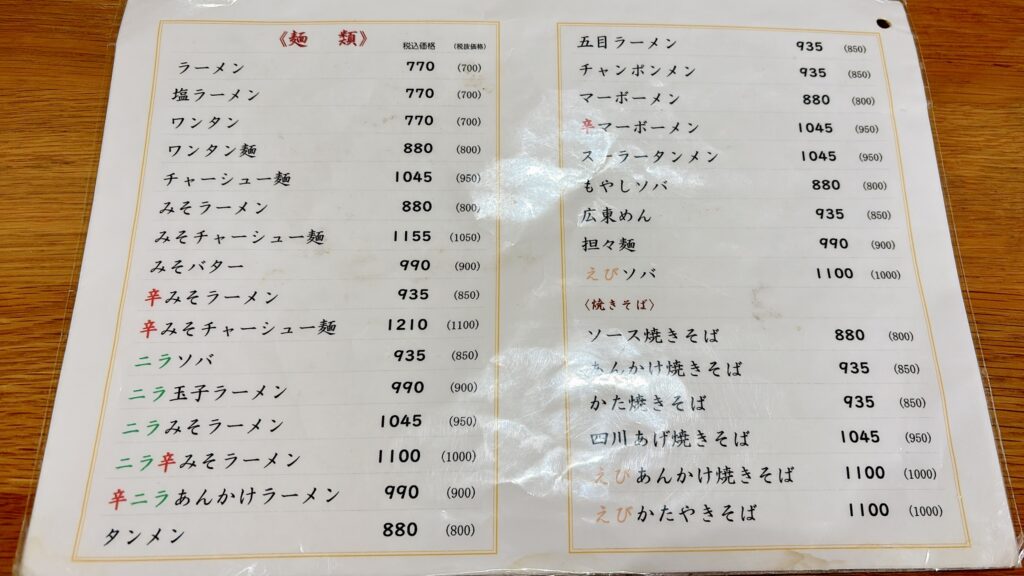 《麺 類》 税込価格 (税抜価格)
ラーメン 770 (700)
塩ラーメン 770 (700)
ワンタン 770 (700)
ワンタン麺 880 (800)
チャーシュー麺 1045 (950)
みそラーメン 880 (800)
みそチャーシュー麺 1155 (1050)
みそバター 990 (900)
辛みそラーメン 935 (850)
辛みそチャーシュー麺 1210 (1100)
ニラソバ 935 (850)
ニラ玉子ラーメン 990 (900)
ニラみそラーメン 1045 (950)
ニラ辛みそラーメン 1100 (1000)
辛ニラあんかけラーメン 990 (900)
タンメン 880 (800)
五目ラーメン 935 (850)
チャンポンメン 935 (850)
マーボーメン 880 (800)
辛マーボーメン 1045 (950)
スーラータンメン 1045 (950)
もやしソバ 880 (800)
広東めん 935 (850)
担々麺 990 (900)
えびソバ 1100 (1000)
〈焼きそば〉
ソース焼きそば 880 (800)
あんかけ焼きそば 935 (850)
かた焼きそば 935 (850)
四川あげ焼きそば 1045 (950)
えびあんかけ焼きそば 1100 (1000)
えびかたやきそば 1100 (1000)